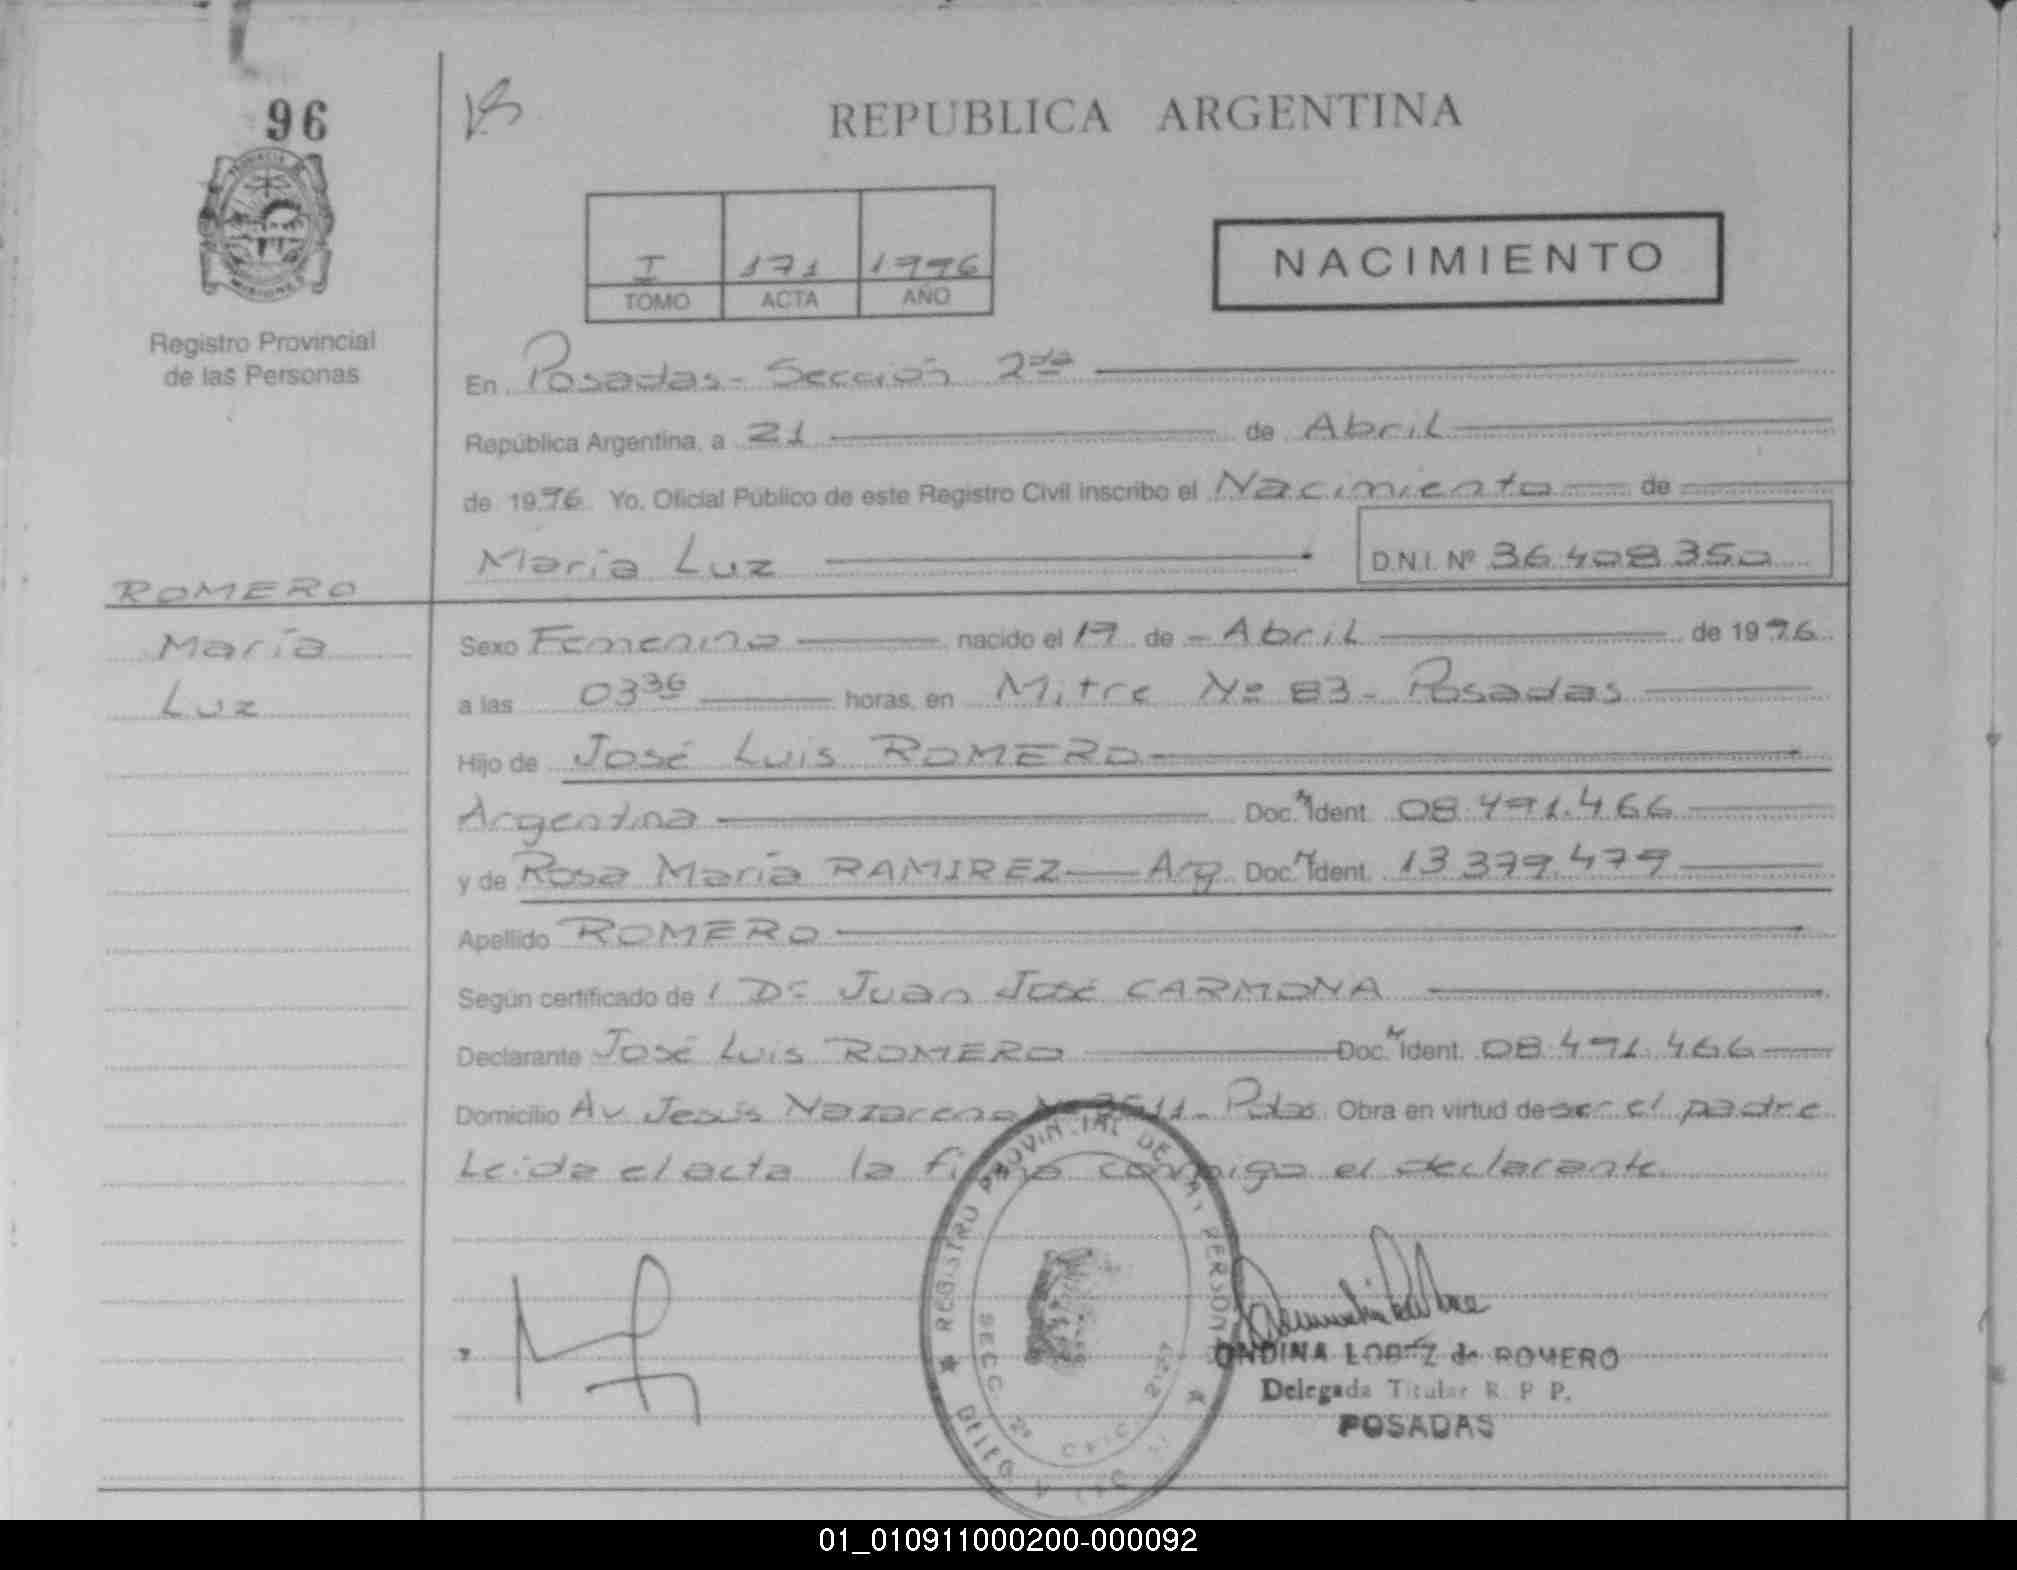 96
REPUBLICA ARGENTINA
I 171 1996
TOMO ACTA AÑO
NACIMIENTO
Registro Provincial
de las Personas
En Posadas - Sección 2da
República Argentina, a 21 de Abril
de 1996 Yo, Oficial Público de este Registro Civil inscribo el Nacimiento de
María Luz D.N.I. Nº 36.408.350
ROMERO
María
Luz
Sexo Femenino nacido el 17 de Abril de 1996
a las 03 36 horas, en Mitre Nº 83 - Posadas
Hijo de José Luis ROMERO
Argentina Doc. Ident. 08.491.466
y de Rosa María RAMIREZ Arg Doc. Ident. 13.379.479
Apellido ROMERO
Según certificado de Dr Juan José CARMONA
Declarante José Luis ROMERO Doc. Ident. 08.491.466
Domicilio Av Jesús Nazareno - Pdas Obra en virtud de ser el padre
Leida el acta la firma conmigo el declarante
REGISTRO PROVINCIAL DE LAS PERSONAS
SECC 2º
ONDINA LOPEZ de ROMERO
Delegada Titular R. P. P.
POSADAS
01_010911000200-000092